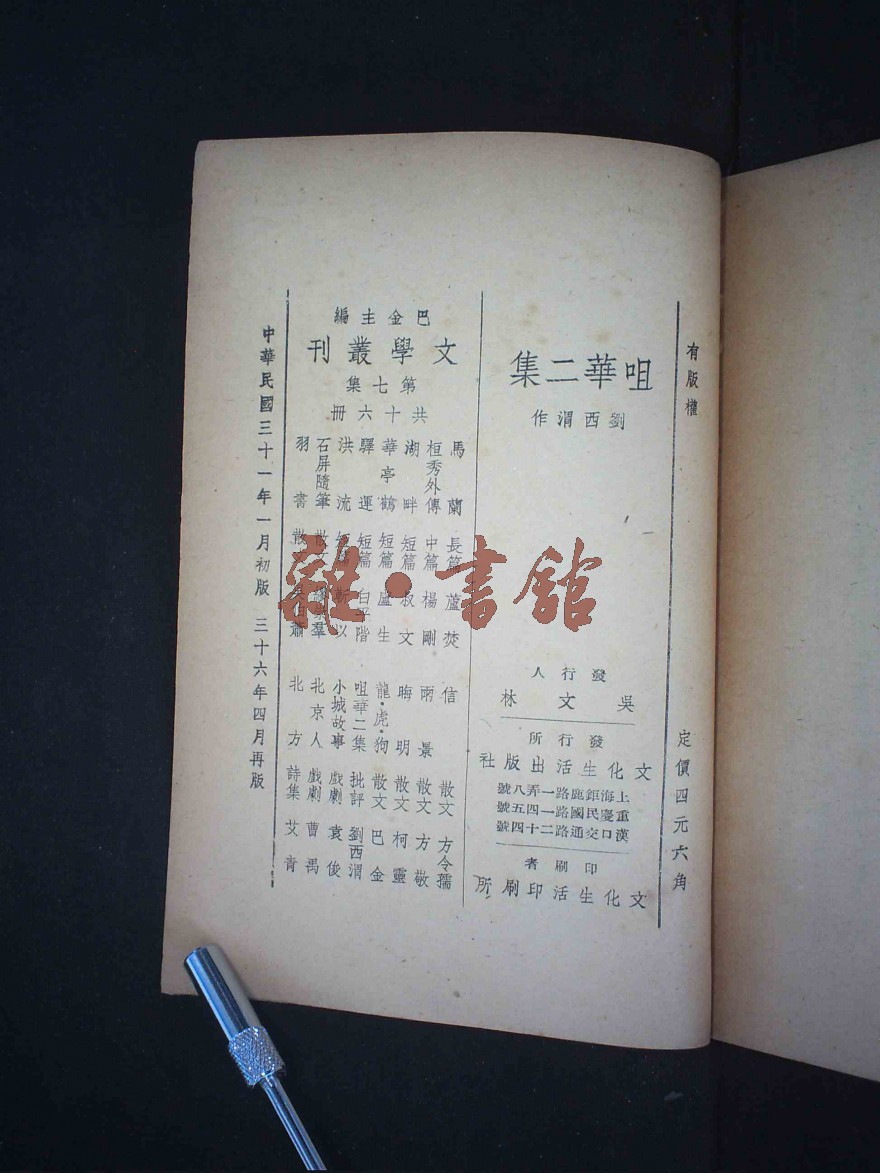 有版權
定價四元六角
咀華二集
劉西渭作
發行人
吳文林
發行所
文化生活出版社
上海鉅鹿路一弄八號
重慶民國路一四五號
漢口交通路二十四號
印刷者
文化生活印刷所
巴金主編
文學叢刊
第七集
共十六册
馬蘭 長篇 蘆焚
桓秀外傳 中篇 楊剛
湖畔 短篇 文
華亭鶴 短篇 盧生
驛運 短篇 白平階
洪流 以
石屏隨筆 羣
羽書
信 散文 方令孺
雨景 散文 方敬
晦明 散文 柯靈
龍·虎·狗 散文 巴金
咀華二集 批評 劉西渭
小城故事 戲劇 袁俊
北京人 戲劇 曹禺
北方 詩集 艾青
中華民國三十一年一月初版 三十六年四月再版
雜·書館